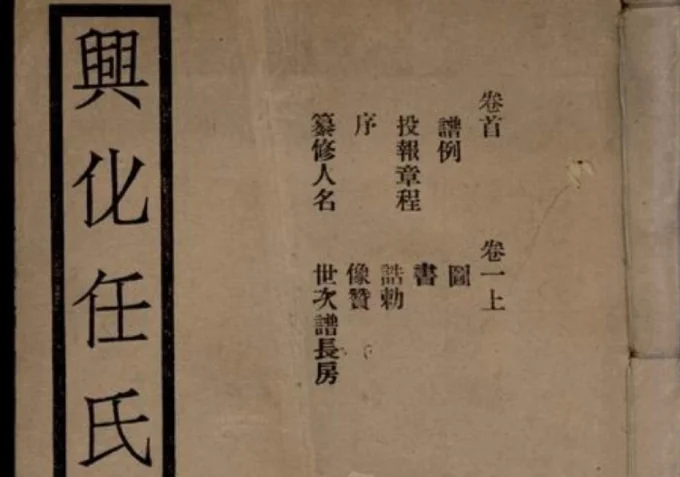 卷首
譜例
投報章程
序
纂修人名
卷一上
圖
書
誥勅
像贊
世次譜長房
興化任氏